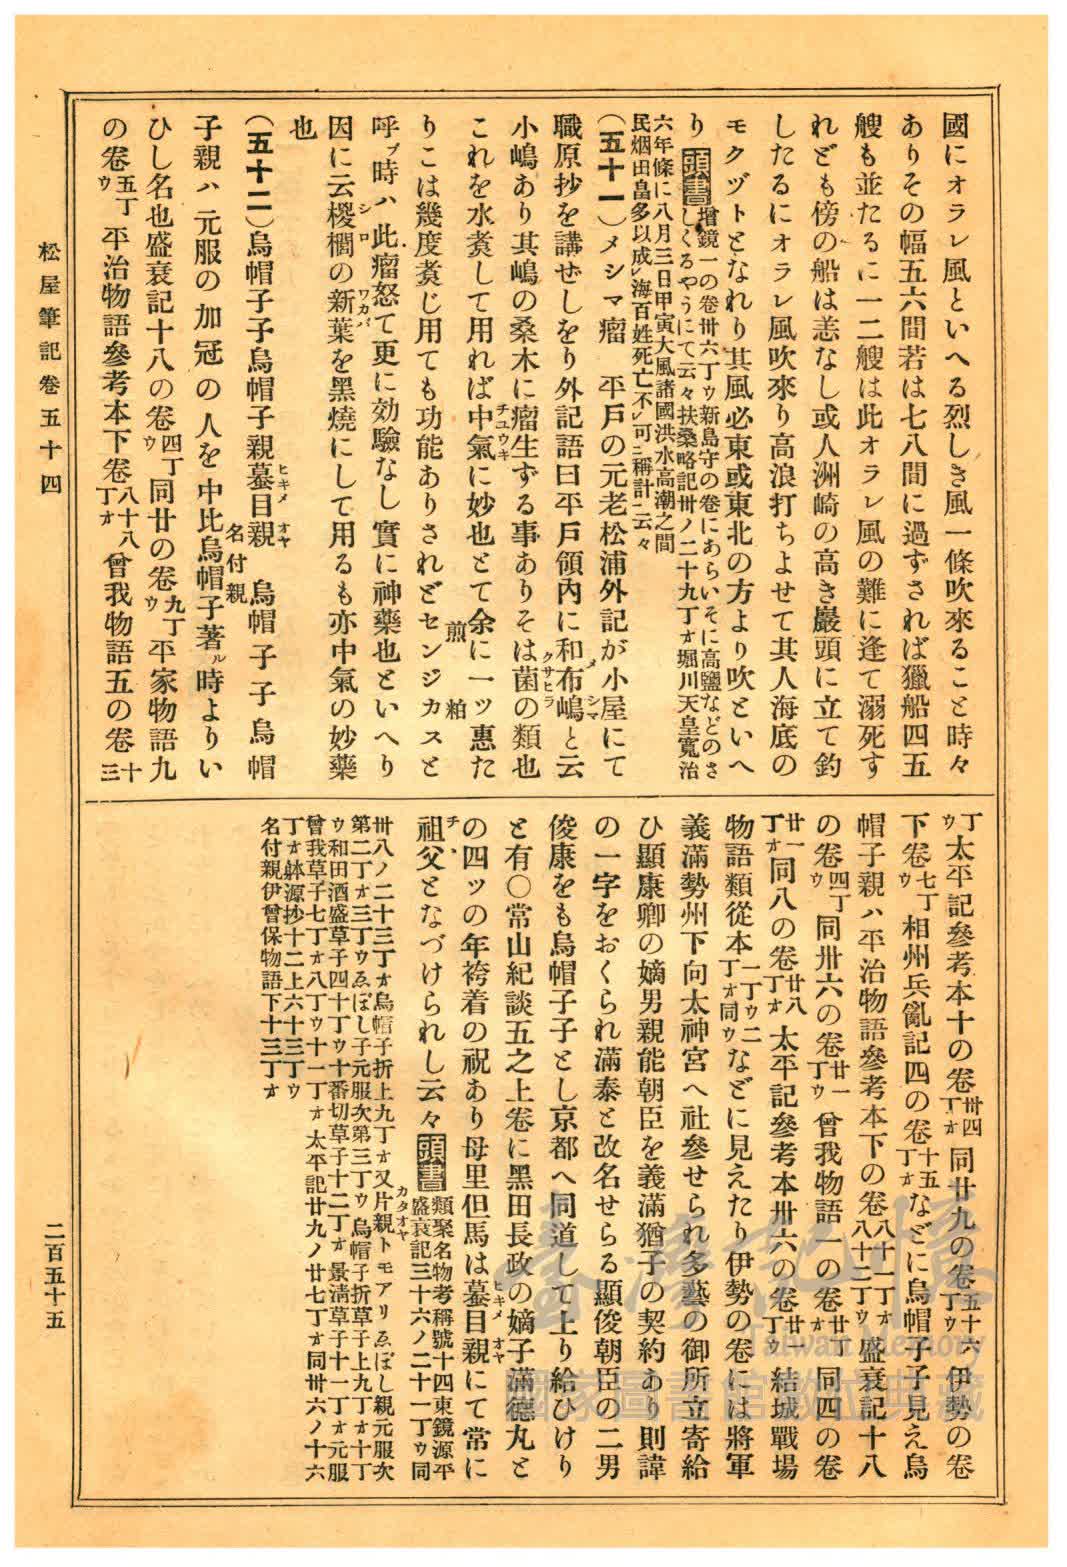 國にオラレ風といへる烈しき風一條吹來ること時々
ありその幅五六間若は七八間に過ずされば獵船四五
艘も並たるに一二艘は此オラレ風の難に逢て溺死す
れども傍の船は恙なし或人洲崎の高き巖頭に立て釣
したるにオラレ風吹來り高浪打ちよせて其人海底の
モクヅトとなれり其風必東或東北の方より吹といへ
り 頭書 增鏡一の卷卅六丁ウ新島守の卷にあらいそに高鹽などのさ
しくるやうにて云々扶桑略記卅ノ二十九丁オ堀川天皇寬治
六年條に八月三日甲寅大風諸國洪水高潮之間
民烟田畠多以成レ海百姓死亡不レ可ニ稱計ニ云々
(五十一)メシマ瘤 平戶の元老松浦外記が小屋にて
職原抄を講ぜしをり外記語曰平戶領內に和布嶋と云
小嶋あり其嶋の桑木に瘤生ずる事ありそは菌の類也
これを水煑して用れば中氣に妙也とて余に一ッ惠た
りこは幾度煑じ用ても功能ありされどセンジカスと
呼ブ時ハ此瘤怒て更に効驗なし實に神藥也といへり
因に云椶櫚の新葉を黑燒にして用るも亦中氣の妙藥
也
(五十二)烏帽子子烏帽子親墓目親 名付親 烏帽子子烏帽
子親ハ元服の加冠の人を中比烏帽子著ル時よりい
ひし名也盛衰記十八の卷四丁ウ同廿の卷九丁ウ平家物語九
の卷五丁ウ平治物語參考本下卷八十八丁オ曾我物語五の卷十三
丁ウ太平記參考本十の卷卅四丁オ同廿九の卷五十六丁ウ伊勢の卷
下卷七丁ウ相州兵亂記四の卷十五丁オなどに烏帽子子見え烏
帽子親ハ平治物語參考本下の卷八十一丁オ八十二丁ウ盛衰記十八
の卷四丁ウ同卅六の卷廿一丁ウ曾我物語一の卷廿丁オ同四の卷
廿一丁オ同八の卷廿八丁オ太平記參考本卅六の卷廿一丁ウ結城戰場
物語類從本一丁ウ二丁オ同ウなどに見えたり伊勢の卷には將軍
義滿勢州下向太神宮へ社參せられ多藝の御所立寄給
ひ顯康卿の嫡男親能朝臣を義滿猶子の契約あり則諱
の一字をおくられ滿泰と改名せらる顯俊朝臣の二男
俊康をも烏帽子子とし京都へ同道して上り給ひけり
と有○常山紀談五之上卷に黑田長政の嫡子滿德丸と
の四ッの年袴着の祝あり母里但馬は墓目親にて常に
祖父となづけられし云々 頭書 類聚名物考稱號十四東鏡源平
盛衰記三十六ノ二十一丁ウ同
卅八ノ二十三丁オ烏帽子折上九丁オ又片親トモアリゑぼし親元服次
第二丁オ三丁ウゑぼし子元服次第三丁ウ烏帽子折草子上九丁オ十丁
ウ和田酒盛草子四十丁ウ十番切草子十二丁オ景淸草子十一丁オ元服
曾我草子七丁オ八丁ウ十一丁オ太平記廿九ノ廿七丁オ同卅六ノ十六
丁オ躰源抄十二上六十三丁ウ
名付親伊曾保物語下十三丁オ
松屋筆記卷五十四
二百五十五
臺灣記憶
Taiwan Memory
國家圖書館數位典藏